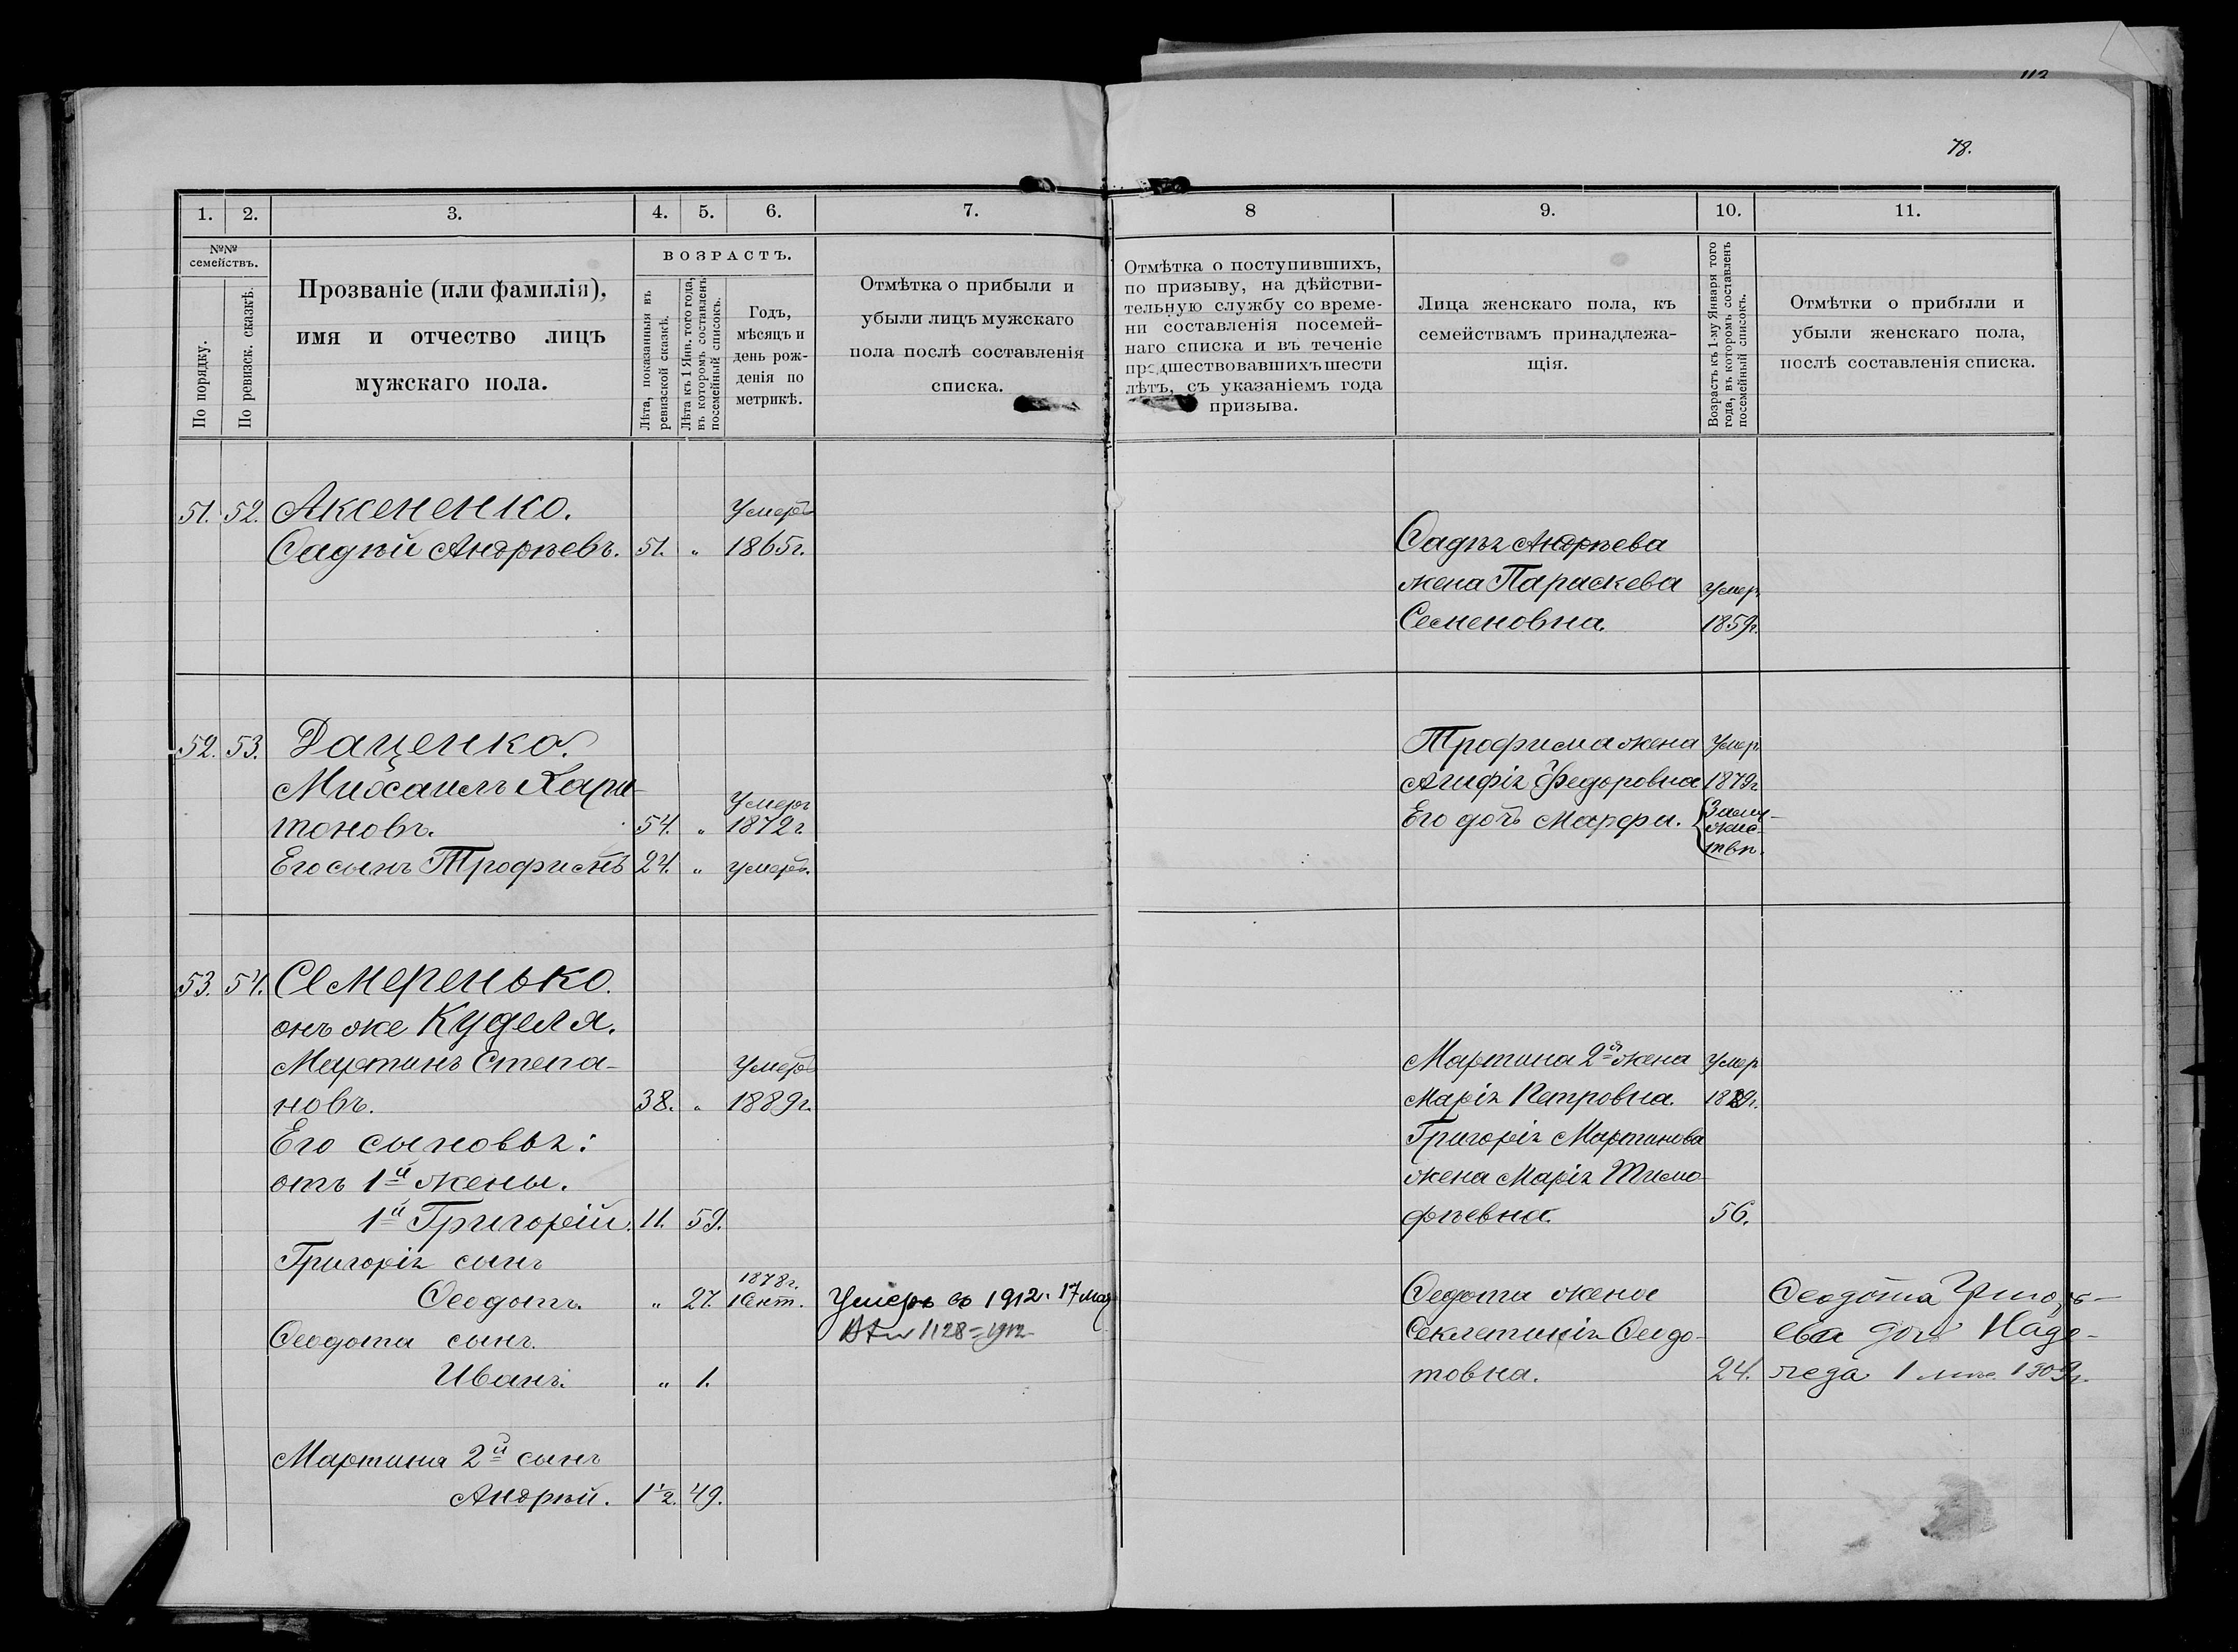 112
78.
1. 2. 3. 4. 5. 6. 7. 8 9. 10. 11.
№№ семействъ.
По порядку.
По ревизск. сказкѣ.
Прозваніе (или фамилія),
имя и отчество лицъ
мужскаго пола.
ВОЗРАСТЪ.
Лѣта, показанныя въ
ревизской сказкѣ.
Лѣта къ 1 Янв. того года,
въ которомъ составленъ
посемейный списокъ.
Годъ,
мѣсяцъ и
день рож-
денія по
метрикѣ.
Отмѣтка о прибыли и
убыли лицъ мужскаго
пола послѣ составленія
списка.
Отмѣтка о поступившихъ,
по призыву, на дѣйстви-
тельную службу со време-
ни составленія посемей-
наго списка и въ теченіе
предшествовавшихъ шести
лѣтъ, съ указаніемъ года
призыва.
Лица женскаго пола, къ
семействамъ принадлежа-
щія.
Возрастъ къ 1-му Января того
года, въ которомъ составленъ
посемейный списокъ.
Отмѣтки о прибыли и
убыли женскаго пола,
послѣ составленія списка.
51. 52. Аксененко. Умеръ
Ѳадѣй Андрѣевъ. 51. „ 1865г.
Ѳадѣя Андрѣева
жена Параскева Умер.
Семеновна. 1859г.
52. 53. Даценко.
Михаилъ Хари-
Умеръ
тоновъ. 54. „ 1872г.
Его сынъ Трофимъ 24. „ умеръ.
Трофима жена Умер.
Агафія Федоровна 1879г.
Его дочь Марфа. Заму-
жис-
твѣ.
53. 54. Семеренько.
онъ же Куделя.
Мартинъ Степа- Умеръ
новъ. 38. „ 1889г.
Его сыновья:
отъ 1й жены.
1й Григорій. 11. 59.
Григорія сынъ
1878г.
Ѳеодотъ. „ 27. 1 Сент. Умеръ въ 1912г. 17 мая
Ѳеодота сынъ. 1128=1912
Иванъ. „ 1.
Мартина 2й сынъ
Андрѣй. 1½. 49.
Мартина 2я жена Умер
Марія Петровна. 1889г.
Григорія Мартинова
жена Марія Тимо-
фѣевна. 56.
Ѳедота жена
Секлетинія Ѳедо-
товна. 24.
Ѳеодота Григорь-
ева дочь Наде-
жда 1 1909г.